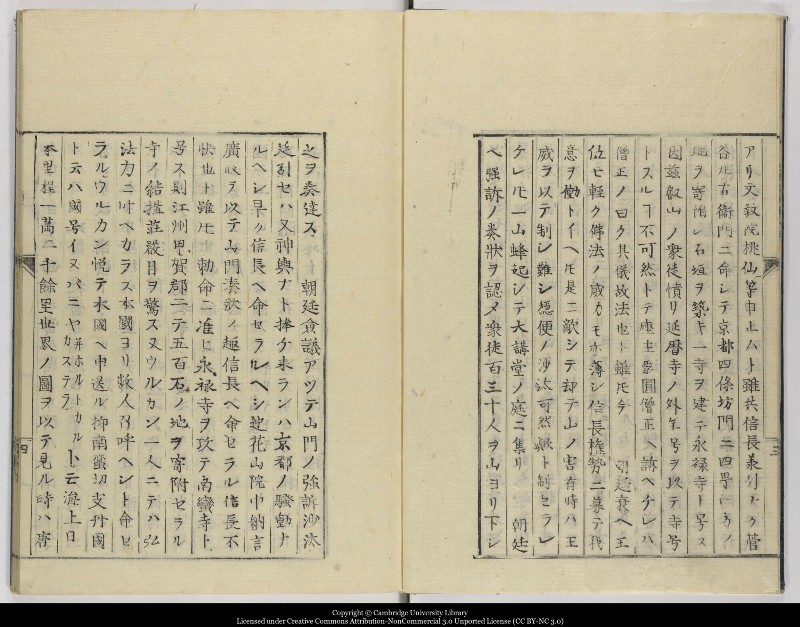 アリ文叙院桃仙等中止ムト雖共信長義付ナク菅
谷九右衛門ニ命シテ京都四條坊門ニ四町四方ノ
地ヲ寄附シ石垣ヲ築キ一寺ヲ建テ永禄寺ト号ス
因茲叡山ノ衆徒憤リ延暦寺ノ外年号ヲ以テ寺号
トスルヿ不可然トテ座主圓僧正ヘ訴ヘケレハ
僧正ノ曰ク其儀故法也ト雖𪜈今 朝廷衰ヘ王
位モ軽ク佛法ノ威力モ亦薄シ信長権勢ニ募テ我
意ヲ働トイヘ𪜈是ニ敵シテ却テ山ノ害有時ハ王
威ヲ以テ制シ難シ穏便ノ沙汰可然歟ト制セラレ
ケレ𪜈一山蜂起シテ大講堂ノ庭ニ集リ 朝廷
ヘ強訴ノ奏狀ヲ認メ衆徒百三十人ヲ山ヨリ下シ
三
之ヲ奏達ス 朝廷僉議アツテ山門ノ強訴沙汰
延引セハ又神輿ナト捧ケ来ランハ京都ノ騒動ナ
ルヘシ早ク信長ヘ命セラルヘシ迚花山院中納言
廣ヲ以テ山門奏状ノ趣信長ヘ命セラル信長不
快也ト雖𪜈勅命ニ准ヒ永禄寺ヲ改テ南蠻寺ト
号ス則江州甲賀郡ニテ五百石ノ地ヲ寄附セラル
寺イ結搆莊嚴目ヲ驚ス又ウルカン一人ニテハ弘
法カニ叶ヘカラス本國ヨリ数人召呼ヘシト命セ
ラルウルカン悦テ本國ヘ申送ル抑南蛮切支丹國
ト云ハ國号イスハニヤ併ホルトカルカステラト云海上日
本里程一萬二千餘里世界ノ圖ヲ以テ見ル時ハ唐
四
Copyright © Cambridge University Library
Licensed under Creative Commons Attribution-NonCommercial 3.0 Unported License (CC BY-NC 3.0)